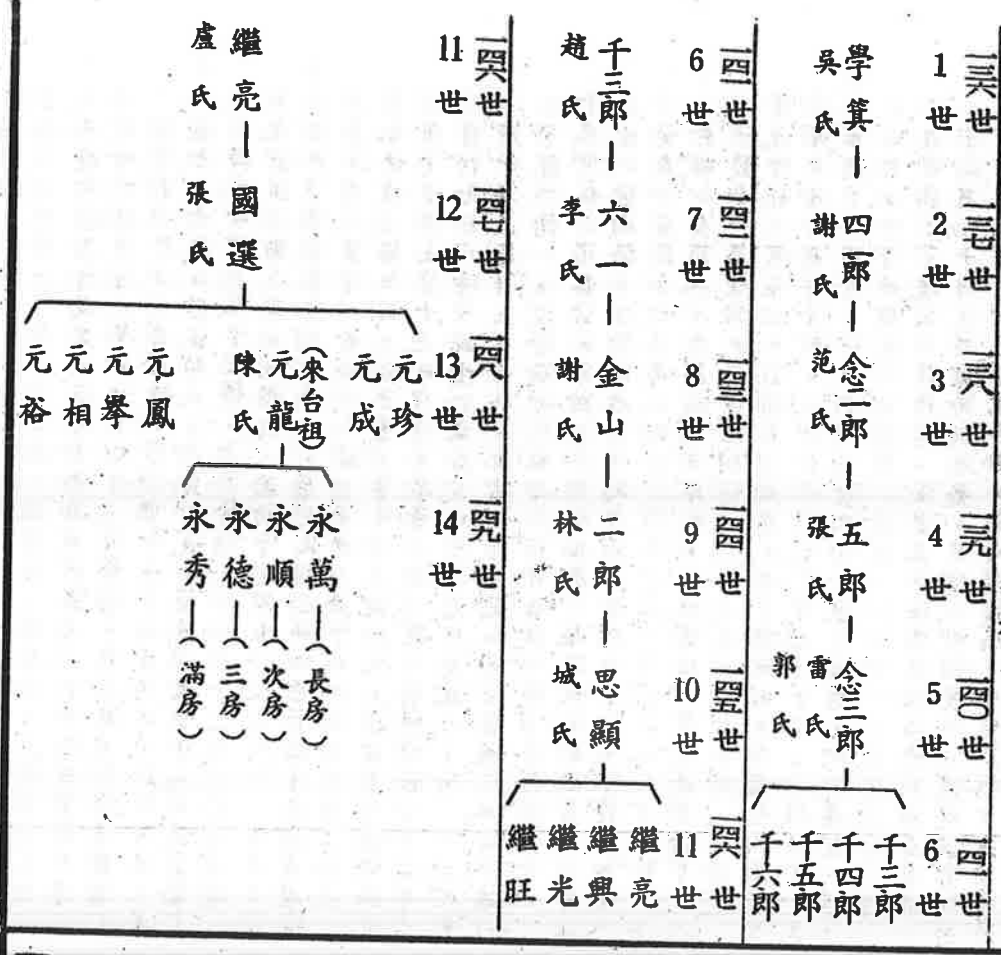 一三六世
1世
學箕
吳氏
一三七世
2世
四二郎
謝氏
一三八世
3世
念二郎
范氏
一三九世
4世
五郎
張氏
一四〇世
5世
念三郎
雷氏
郭氏
一四一世
6世
千三郎
千四郎
千五郎
千六郎
一四一世
6世
千三郎
趙氏
一四二世
7世
六一
李氏
一四三世
8世
金山
謝氏
一四四世
9世
二郎
林氏
一四五世
10世
思顯
城氏
一四六世
11世
繼亮
繼興
繼光
繼旺
一四六世
11世
繼亮
盧氏
一四七世
12世
國選
張氏
一四八世
13世
元珍
元成
(來台祖)
元龍
陳氏
元鳳
元舉
元相
元裕
一四九世
14世
永萬—(長房)
永順—(次房)
永德—(三房)
永秀—(滿房)